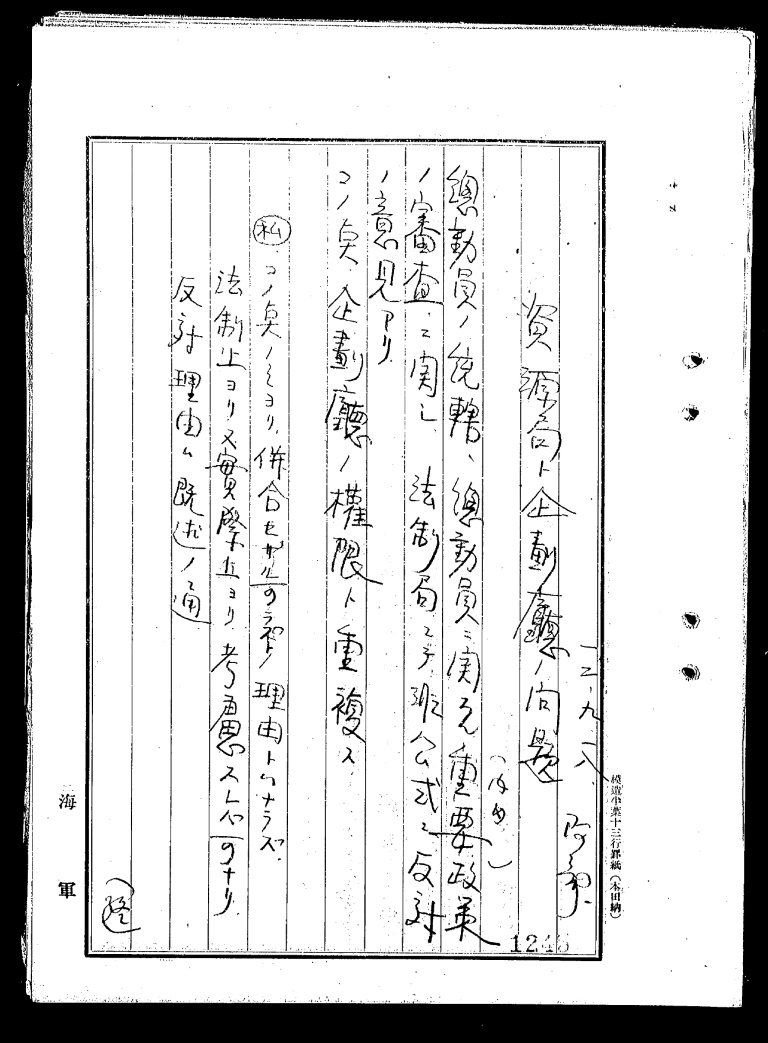 一二、九、一八
資源局ト企劃廳ノ問題
總動員ノ統轄、總動員ニ関スル重要政策
ノ審査ニ関シ、法制局ニテ非公式ニ反対
ノ意見アリ
コノ点、企劃廳ノ權限ト重複ス
㊙私 コノ点ノミヨリ、併合セザル可ラザル理由トハナラズ、
法制上ヨリ又實際上ヨリ考慮スベ可ナリ
反対理由ハ既述ノ通
海軍
模造半葉十三行罫紙(本田納)
124